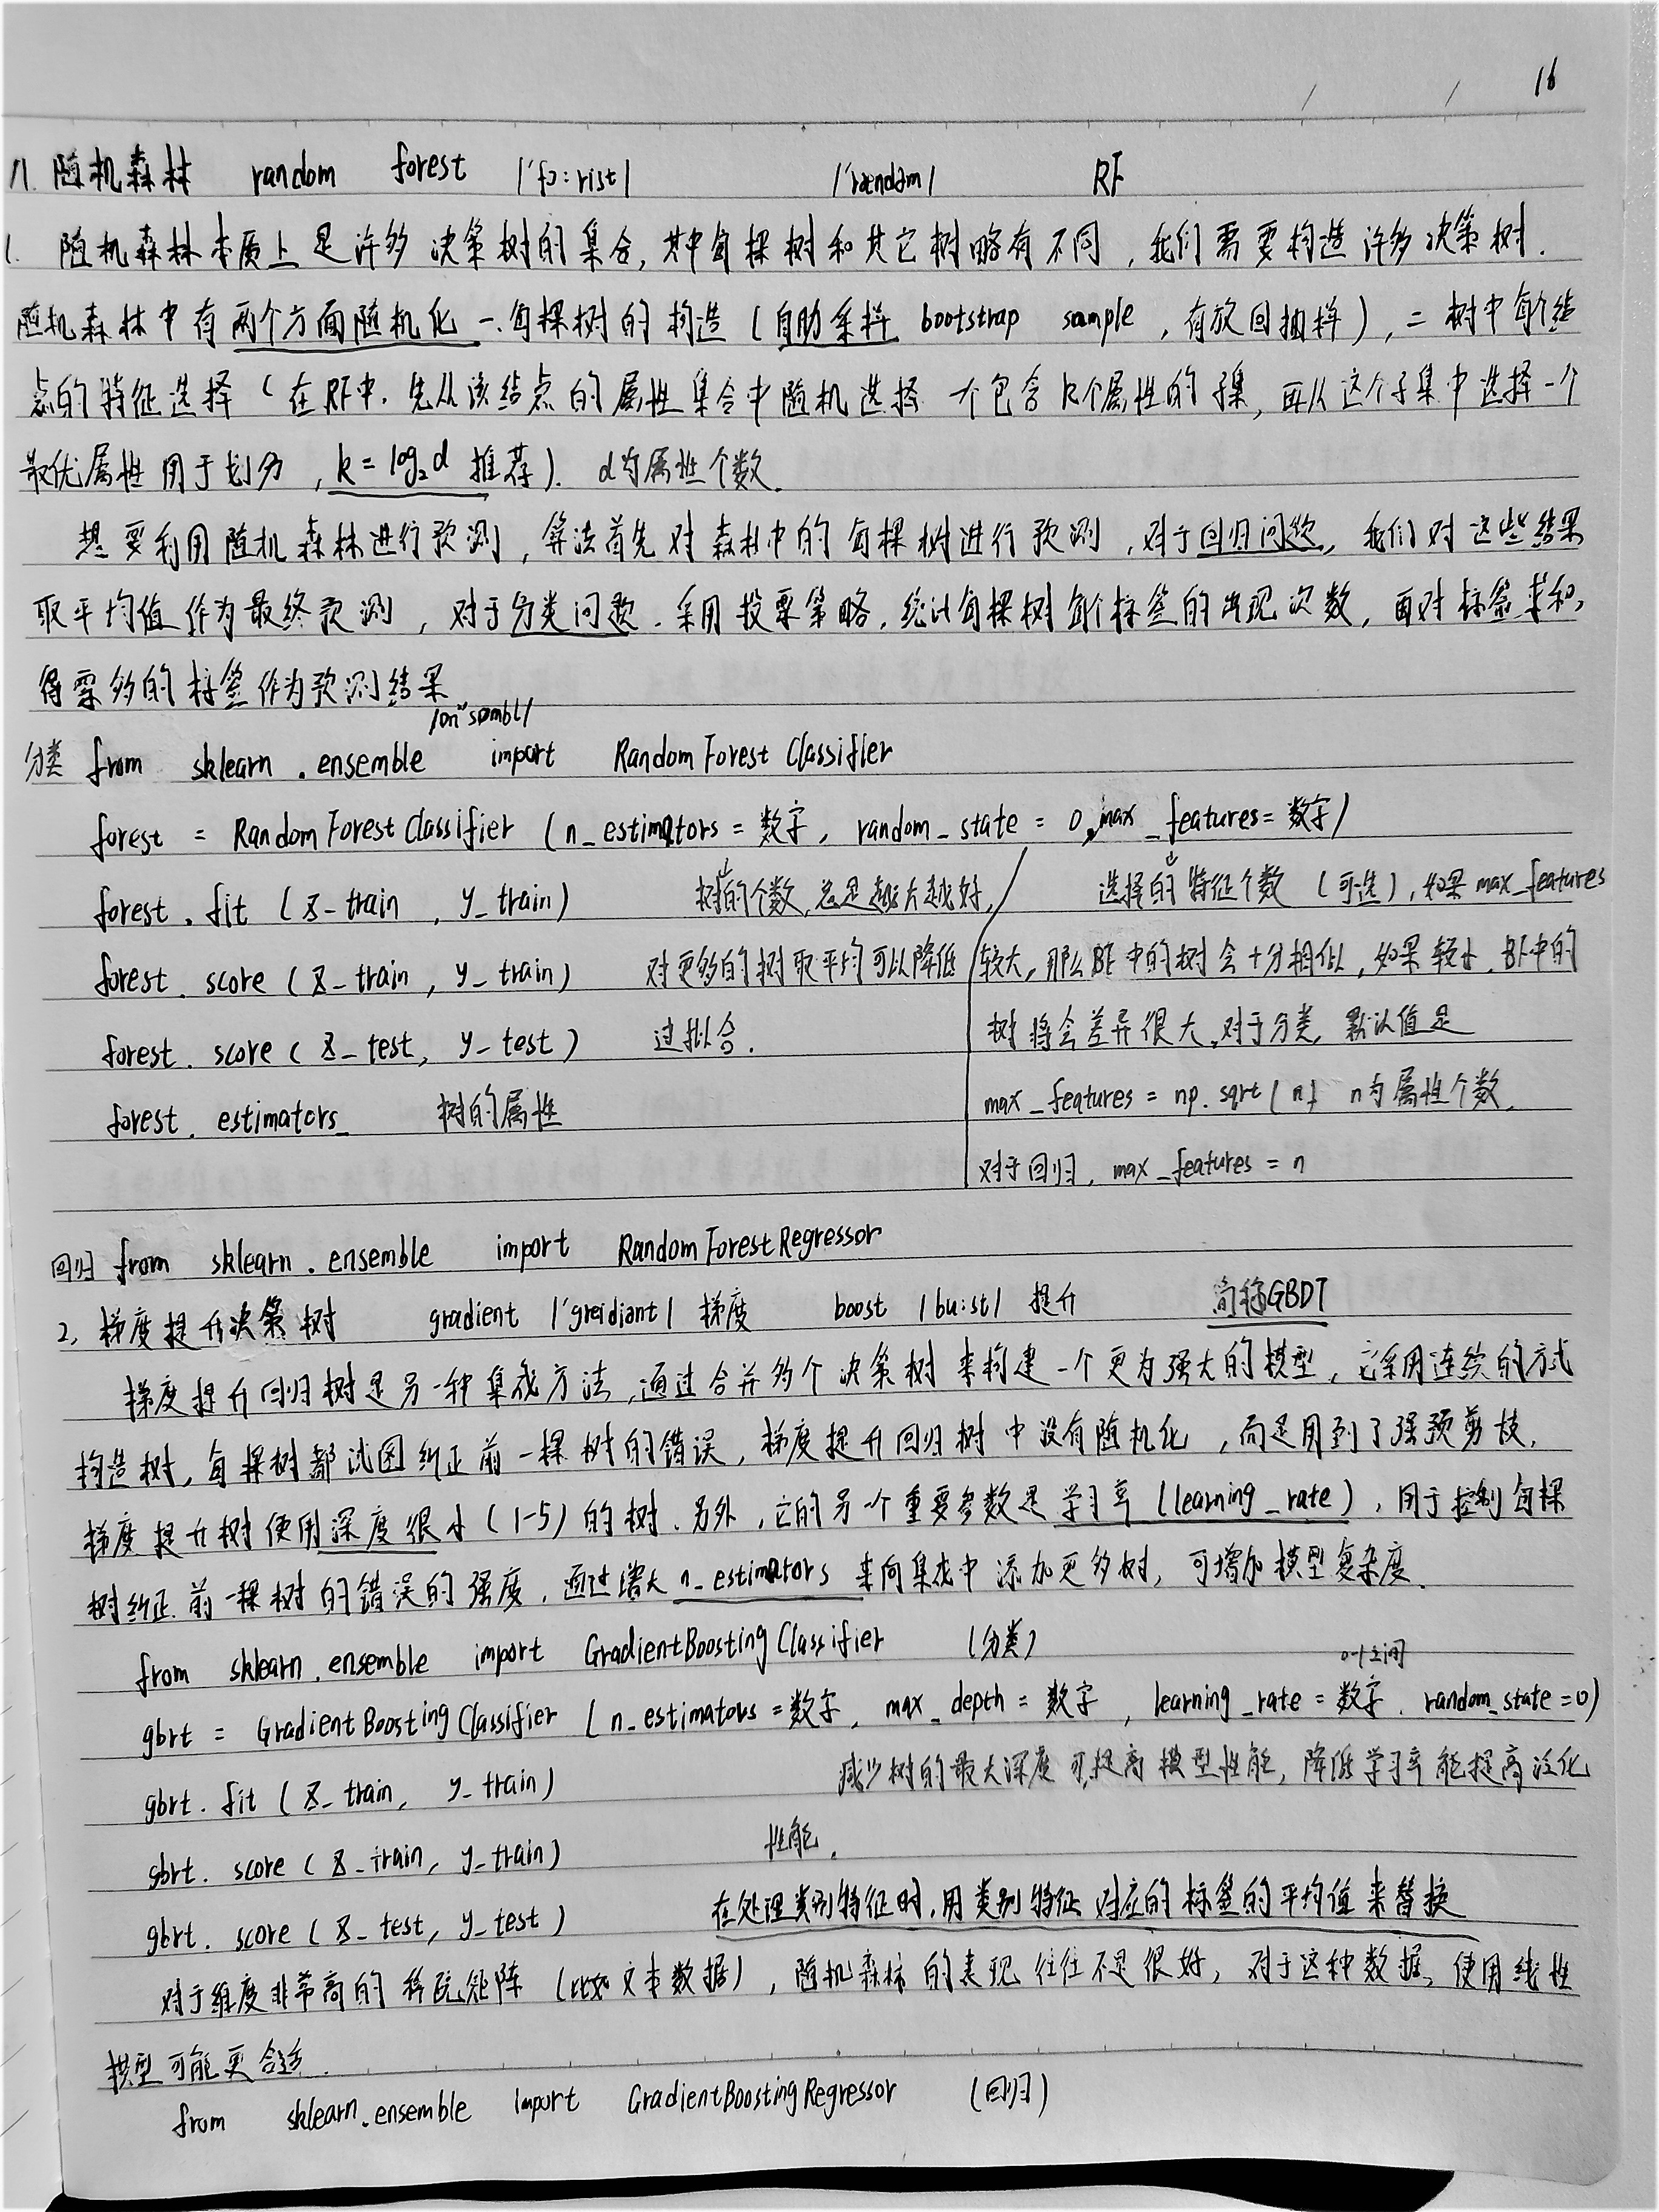 16
八. 随机森林 random forest /'fɔ:rist/ /'rændəm/ RF
1. 随机森林本质上是许多决策树的集合,其中每棵树和其它树略有不同,我们需要构造许多决策树.
随机森林中有两个方面随机化 一.每棵树的构造(自助采样 bootstrap sample,有放回抽样),二 树中每个结
点的特征选择(在RF中.先从该结点的属性集合中随机选择 一个包含k个属性的子集,再从这个子集中选择一个
最优属性用于划分,k=log₂d 推荐). d为属性个数.
想要利用随机森林进行预测,算法首先对森林中的每棵树进行预测,对于回归问题,我们对这些结果
取平均值作为最终预测,对于分类问题.采用投票策略,统计每棵树每个标签的出现次数,再对标签求和,
得票多的标签作为预测结果
/ɒn'sɒmbl/
分类 from sklearn.ensemble import RandomForestClassifier
forest = RandomForestClassifier (n_estimators=数字, random_state = 0, max_features=数字)
forest.fit (X_train, y_train) 树的个数,总是越大越好, 选择的特征个数(可选),如果max_features
forest.score (X_train, y_train) 对更多的树取平均可以降低 较大,那么RF中的树会十分相似,如果较小,RF中的
forest.score (X_test, y_test) 过拟合. 树将会差异很大,对于分类,默认值是
forest.estimators_ 树的属性 max_features = np.sqrt(n) n为属性个数.
对于回归, max_features = n
回归 from sklearn.ensemble import RandomForestRegressor
2. 梯度提升决策树 gradient /'greidiənt/ 梯度 boost /bu:st/ 提升 简称GBDT
梯度提升回归树是另一种集成方法,通过合并多个决策树来构建一个更为强大的模型,它采用连续的方式
构造树,每棵树都试图纠正前一棵树的错误,梯度提升回归树中没有随机化,而是用到了强预剪枝,
梯度提升树使用深度很小(1-5)的树.另外,它的另一个重要参数是学习率(learning_rate),用于控制每棵
树纠正前一棵树的错误的强度,通过增大n_estimators来向集成中添加更多树,可增加模型复杂度.
from sklearn.ensemble import GradientBoostingClassifier (分类)
0-1之间
gbrt = GradientBoostingClassifier (n_estimators=数字, max_depth=数字, learning_rate=数字. random_state=0)
gbrt.fit (X_train, y_train) 减少树的最大深度可提高模型性能,降低学习率能提高泛化
gbrt.score (X_train, y_train) 性能.
gbrt.score (X_test, y_test) 在处理类别特征时,用类别特征对应的标签的平均值来替换
对于维度非常高的稀疏矩阵(比如文本数据),随机森林的表现往往不是很好,对于这种数据,使用线性
模型可能更合适.
from sklearn.ensemble import GradientBoostingRegressor (回归)